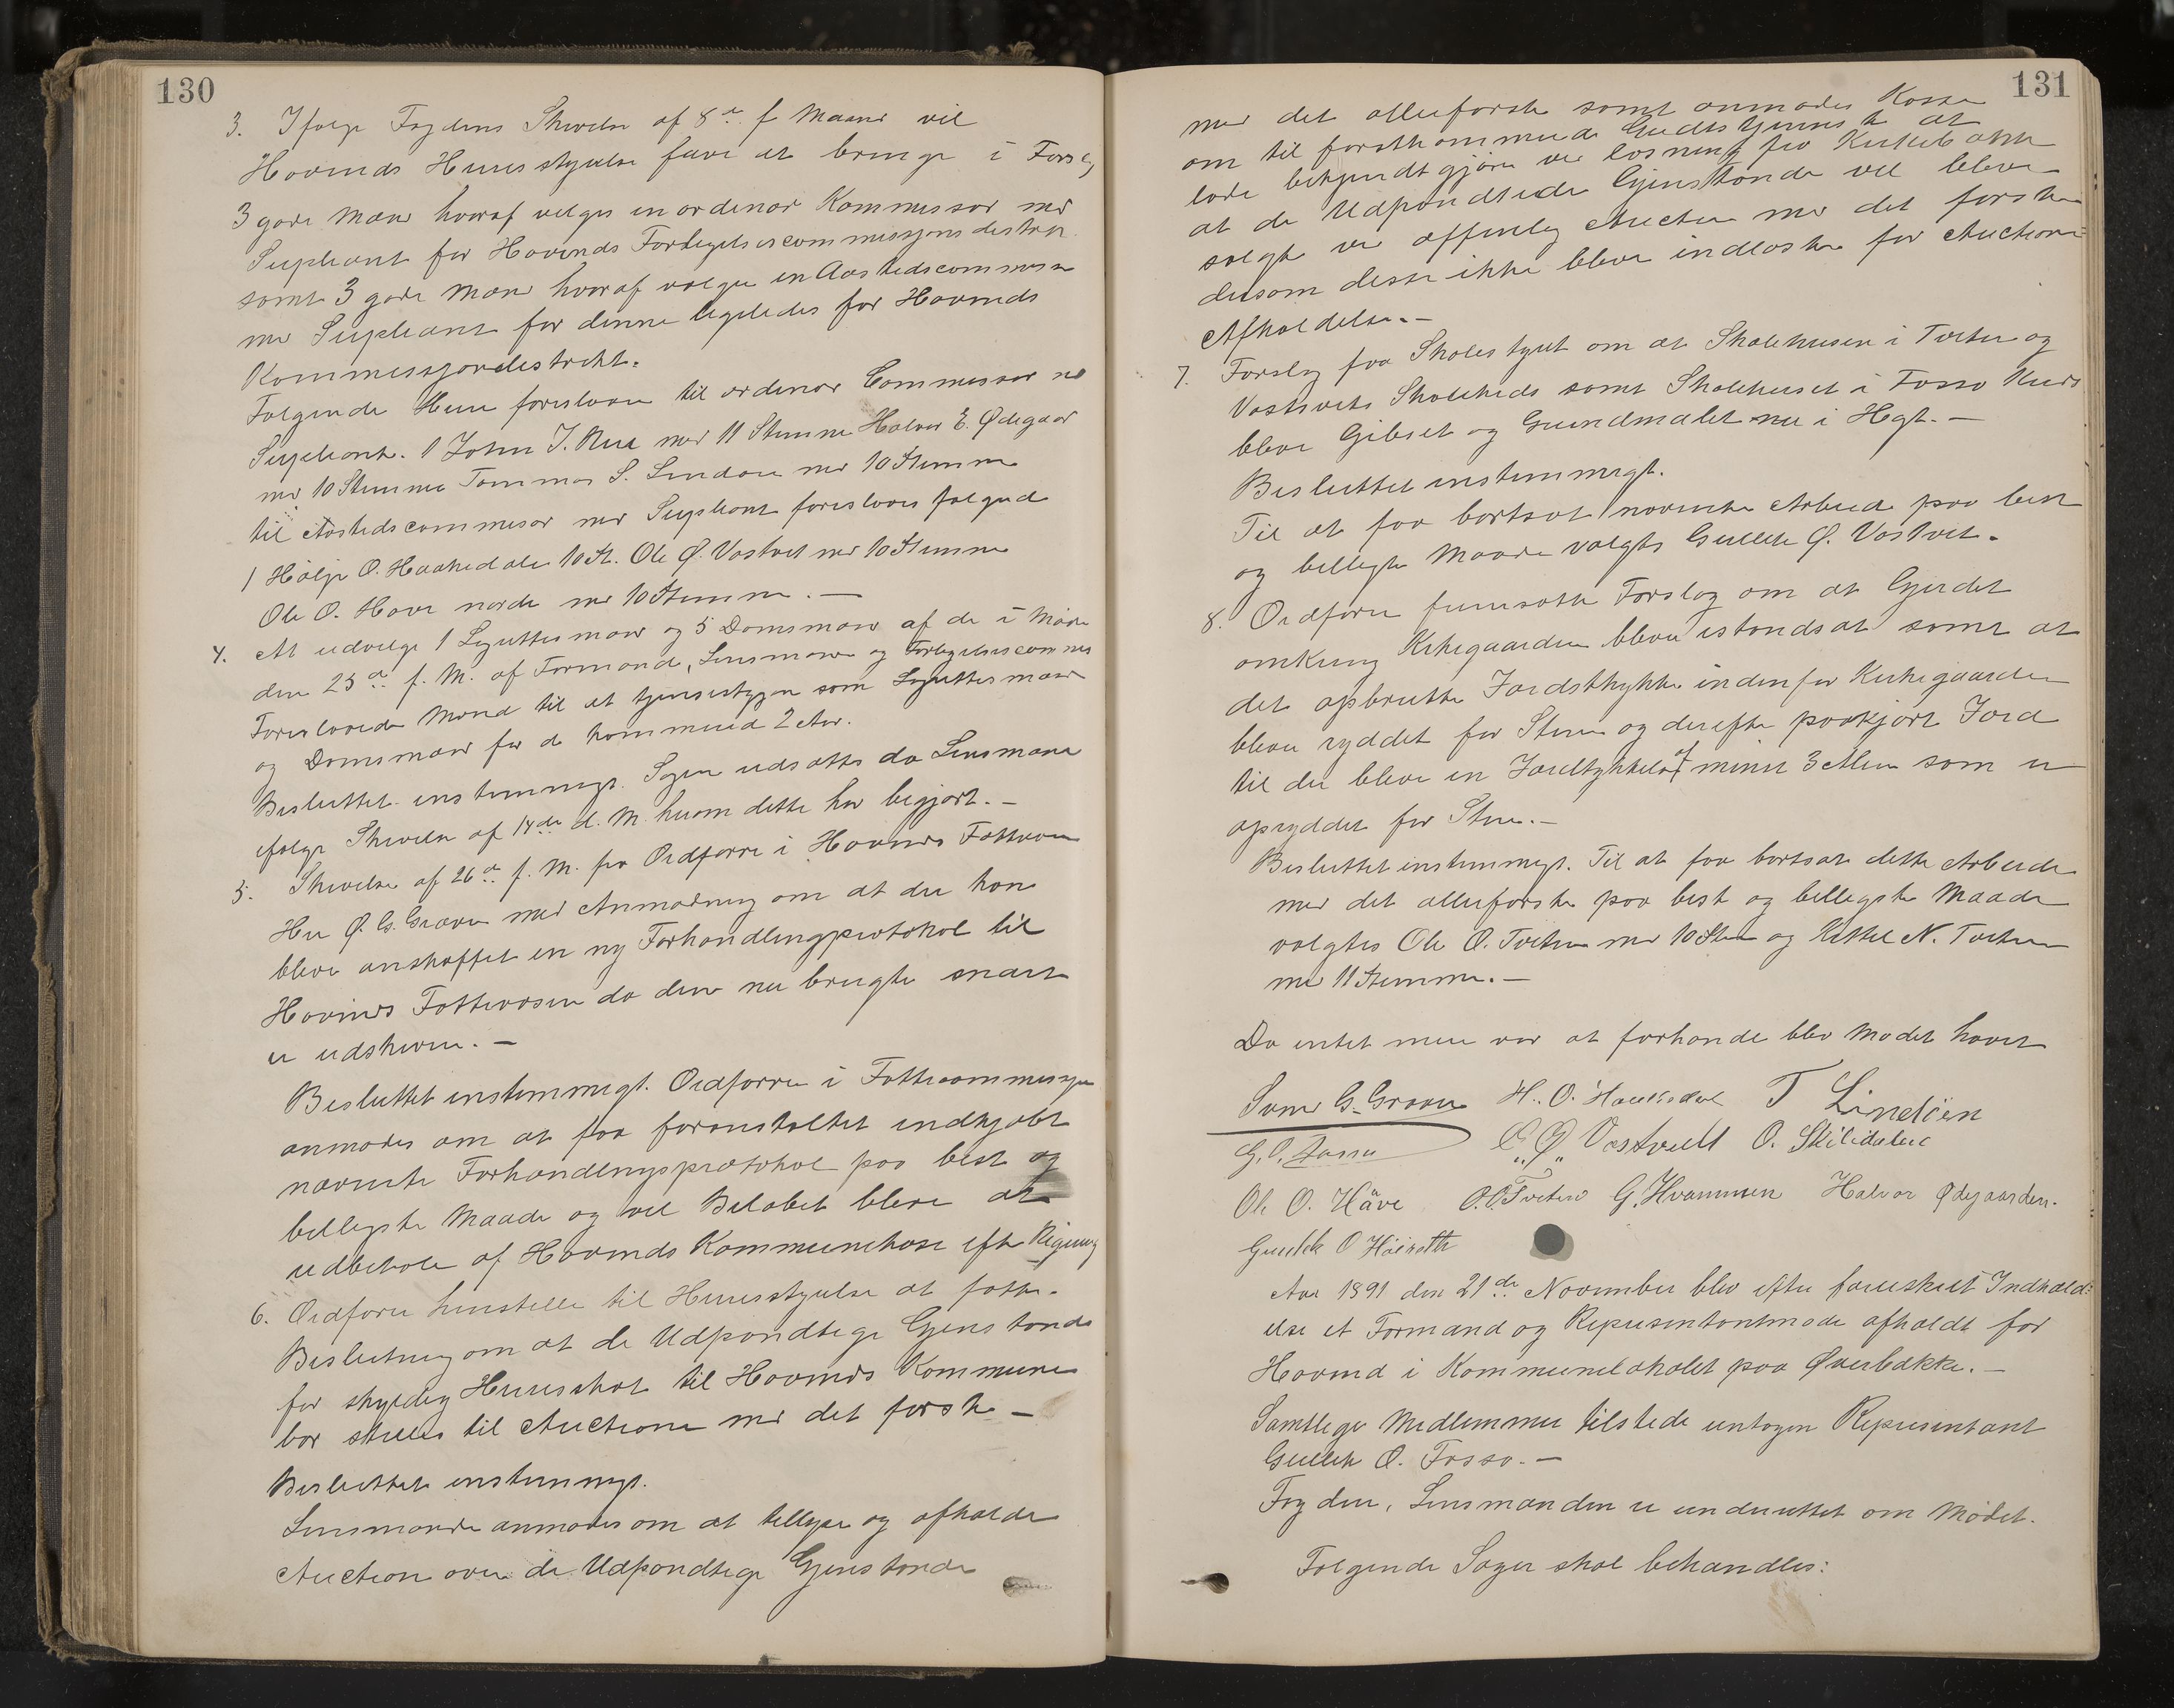 130
3. Ifølge Fogdens Skrivelse af 8de f Maaned vil
Hovinds Herresstyrelse have at bringe i Forslag
3 gode Mænd hvoraf velges en ordenær Kommissær med
Supleant for Hovinds Fortegelsescommissjons destrei
samt 3 gode Mænd hvoraf velges en Aastedscommissæ
med Supleant for denne ligeledes for Hovinds
Kommissjonsdestrekt.
Følgende Herrer foreslaaes til ordenær Commissær med
Supleant. 1 John J. Rue med 11 Stemmer Halvor E. Ødegaar
med 10 Stemmer Tommas S. Lindøen med 10 Stemmer
til Aastedscommesær med Supleant foreslaaes følgende
1 Hølje O. Haakedalen 10 St. Ole Ø. Vastveit med 10 Stemmer
Ole O. Hove nordre med 10 Stemmer. —
4. At udvelge 1 Lagrettesmænd og 5 Domsmænd af de i Møde
den 25de f. M. af Formænd, Lensmænd og Forlegelsescommes
Foreslaaede Mænd til at tjenestgjøre som Lagrettesmænd
og Domsmænd for de kommende 2 Aar.
Besluttet enstemmigt. Sagen udsættes da Lensmanden
ifølge Skrivelse af 14de d. M. herom dette har begjært. —
5. Skrivelse af 26de f. M. fra Ordfører i Hovinds Fattevæs
Herr Ø. G. Graver med Anmodning om at der kan
blive anskaffet en ny Forhandlingprotokol til
Hovinds Fattevæsen da den nu brugte snart
er udskreven. —
Besluttet enstemmigt. Ordføreren i Fattecommessjon
anmodes om at faa foranstaltet indkjøbt
nævnte Forhandlingsprotokol paa beste og
belligste Maade og vil Beløbet blive at
udbetale af Hovinds Kommunekase efter Regning
6. Ordfører henstiller til Herresstyrelse at fatte
Beslutning om at de Udpandtege Gjenstande
for skyldig Herresskat til Hovinds Kommune
bør stilles til Auction med det første —
Besluttet enstemmigt.
Lensmanden anmodes om at tellyse og afholde
Auction over de Udpandtege Gjenstande
131
med det allerførste samt anmodes Kasse
om til førstkommende Gudstjeneste at
lade bekjendtgjøre ved læsning fra Kirkebakken
at de Udpandtede Gjenstande vil blive
solgt ved offenlig Auction med det første
dersom desse ikke bliver indløste før Auctionens
Afholdelse. —
7. Forslag fra Skolestyret om at Skolehusen i Tveten og
Vastveits Skolekreds samt Skolehuset i Fosso Kreds
blive Gibset og Grundmalet nu i Høgst. —
Besluttet enstemmigt.
Til at faa bortsat nævnte Arbeide paa best
og belligste Maade valgtes Gullek Ø. Vastveit.
8. Ordføren fremsatte Forslag om at Gjerdet
omkring Kirkegaarden bliver istandsat samt at
det opbrutte Jordstykke indenfor Kirkegaarden
bliver ryddet for Stene og derefter paakjørt Jord
til der bliver en Jordtykkelse af mindst 3 Alen som er
opryddet for Stene. —
Besluttet enstemmigt. Til at faa bortsat dette Arbeide
med det allerførste paa best og belligste Maade
valgtes Ole O. Tveten med 10 Stem og Kittel N. Tveten
med 11 Stemmer. —
Da entet mere var at forhande blev Mødet hævet
Svend G. Graver H. O. Haakedal T Lindöen
G. O. Fosso G. Ø. Vastveit O. Skilidalen
Ole O. Häve O.O. Tveten G. Hvammen Halvor Ødegaarden.
Gunlek O Höiseth
Aar 1891 den 21de November blev efter foreskreet Indkald-
else et Formand og Representantmøde afholdt for
Hovind i Kommunelokalet paa Øverbakke. —
Samtlege Medlemmer tilstede untagen Representant
Gullek O. Fosso. —
Fogden, Lensmanden er underrettet om Mødet.
Følgende Sager skal behandles: